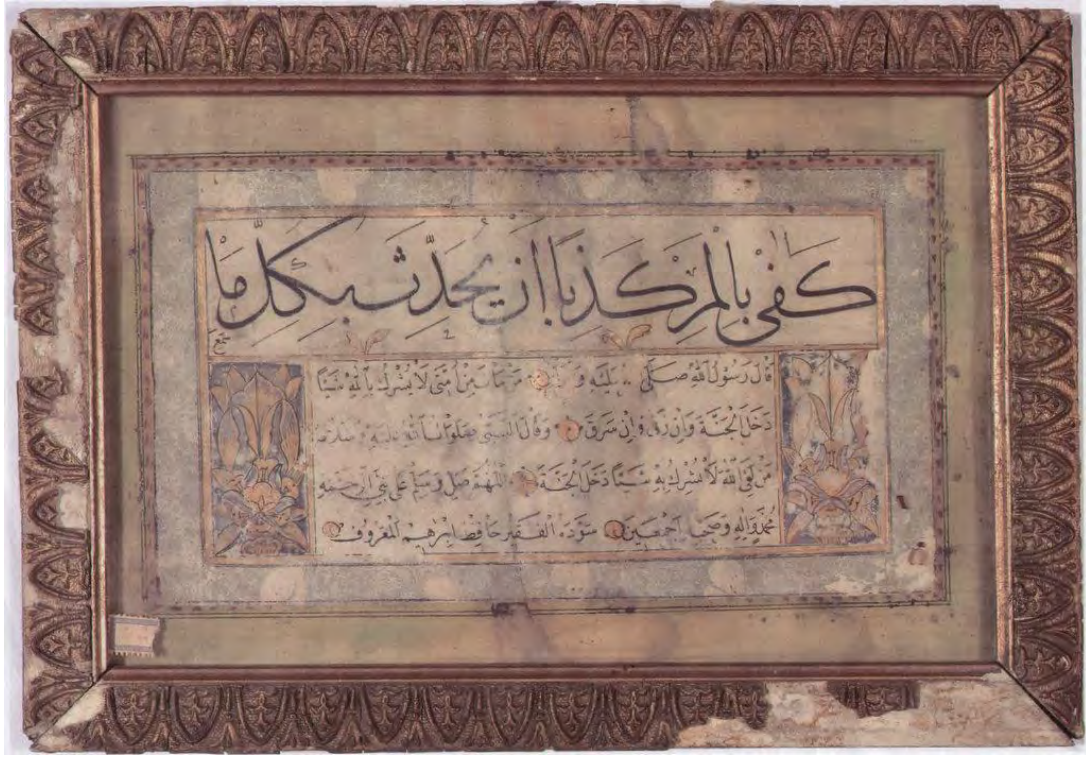 كَفٰى بِالْمَرْءِ كَذِبًا اَنْ يُحَدِّثَ بِكُلِّ مَا
سَمِعَ
قَالَ رَسُولُ اللّٰهِ صَلَّى عَلَيْهِ وَ مَنْ مَاتَ مِنْ اُمَّتِى لَا يُشْرِكُ بِاللّٰهِ شَيْئًا
دَخَلَ الْجَنَّةَ وَاِنْ زَنٰى وَاِنْ سَرَقَ وَقَالَ النَّبِىُّ صَلَوَاتُ اللّٰهِ عَلَيْهِ وَسَلَامُهُ
مَنْ لَقِىَ اللّٰهَ لَا يُشْرِكُ بِهِ شَيْئًا دَخَلَ الْجَنَّةَ اَللّٰهُمَّ صَلِّ وَسَلِّمْ عَلٰى نَبِىِّ الرَّحْمَةِ
مُحَمَّدٍ وَاٰلِهِ وَصَحْبِهِ اَجْمَعِينَ سَوَّدَهُ الْفَقِيرُ حَافِظ اِبْرٰهِيم الْمَعْرُوف